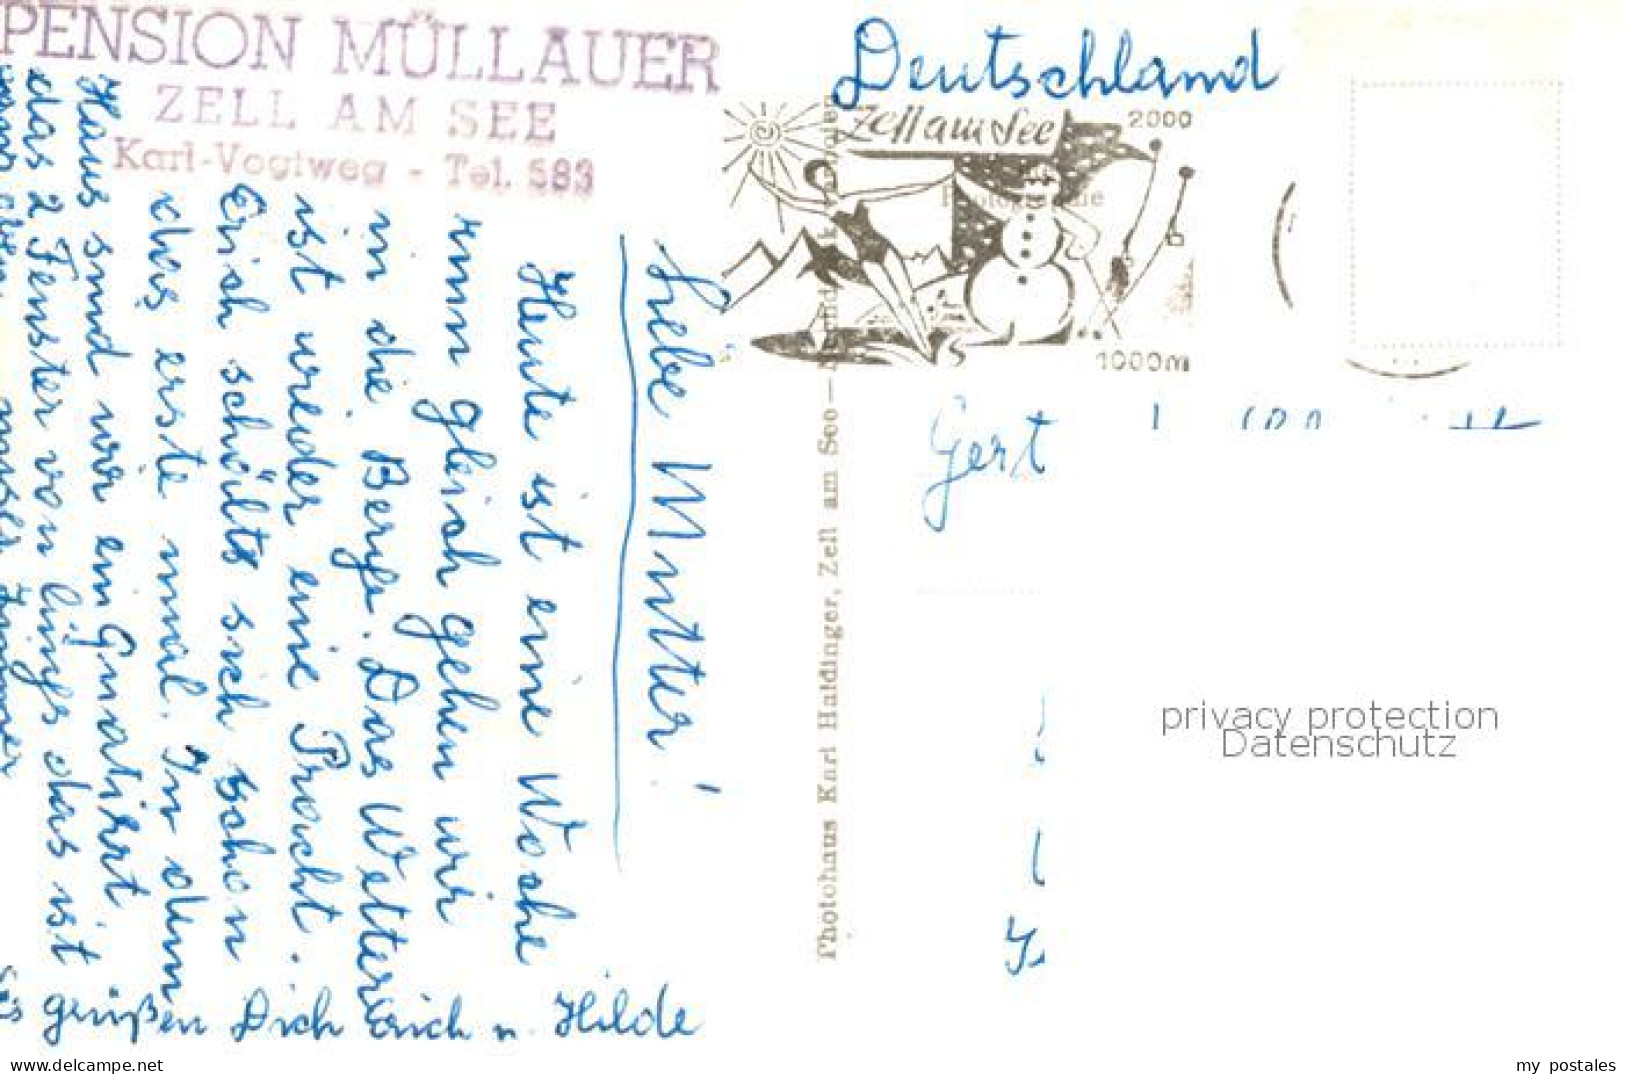 PENSION MÜLLAUER
ZELL AM SEE
Karl-Vogtweg - Tel. 583
Liebe Mutter!
Heute ist eine Woche
rum gleich gehen wir
in die Berge. Das Wetter
ist wieder eine Pracht.
Erich schält sich schon
das erste mal. In dem
Haus sind wir ein Quatirt.
das 2 Fenster von links das ist
unser Zimmer
Es grüßen Dich Erich u. Hilde
Photohaus Karl Haidinger, Zell am See
Deutschland
Zell am See
2000
1000m
Gert
privacy protection
Datenschutz
oldthing.com
my_postales